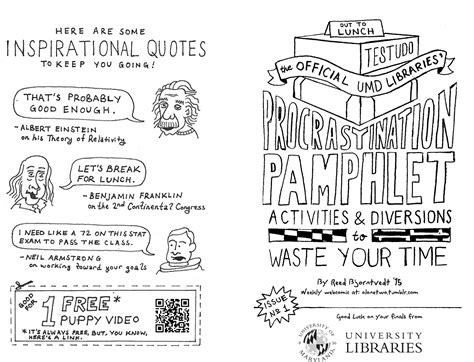 HERE ARE SOME
INSPIRATIONAL QUOTES
TO KEEP YOU GOING!
THAT'S PROBABLY
GOOD ENOUGH.
-ALBERT EINSTEIN
on his Theory of Relativity
LET'S BREAK
FOR LUNCH.
-BENJAMIN FRANKLIN
on the 2nd Continental Congress
I NEED LIKE A 72 ON THIS STAT
EXAM TO PASS THE CLASS.
-NEIL ARMSTRONG
on working toward your goals
GOOD FOR
1 FREE*
PUPPY VIDEO
*IT'S ALWAYS FREE, BUT, YOU KNOW,
HERE'S A LINK.
OUT TO
LUNCH
TESTUDO
the OFFICIAL UMD LIBRARIES'
PROCRASTINATION
PAMPHLET
ACTIVITIES & DIVERSIONS
to
WASTE YOUR TIME
By Reed Bjorntvedt '15
Weekly webcomic at: alonetwo.tumblr.com
ISSUE
No 1
Good Luck on your finals from
UNIVERSITY OF
MARYLAND
UNIVERSITY
LIBRARIES